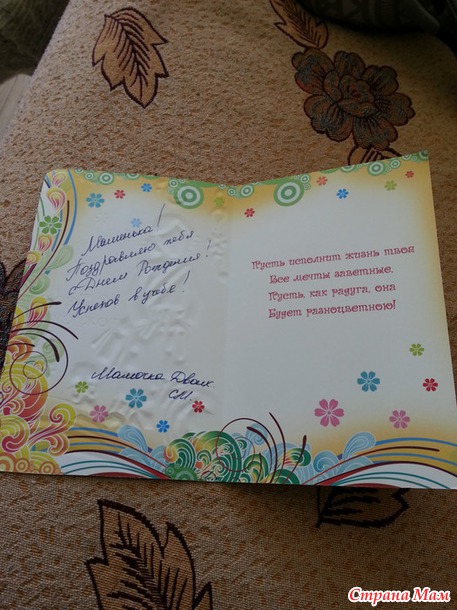 Машенька!
Поздравляю тебя
с Днем Рождения!
Успехов в учебе!
Мамочка Двоих
СМ.
Пусть исполнит жизнь твоя
Все мечты заветные,
Пусть, как радуга, она
Будет разноцветною!
Страна Мам